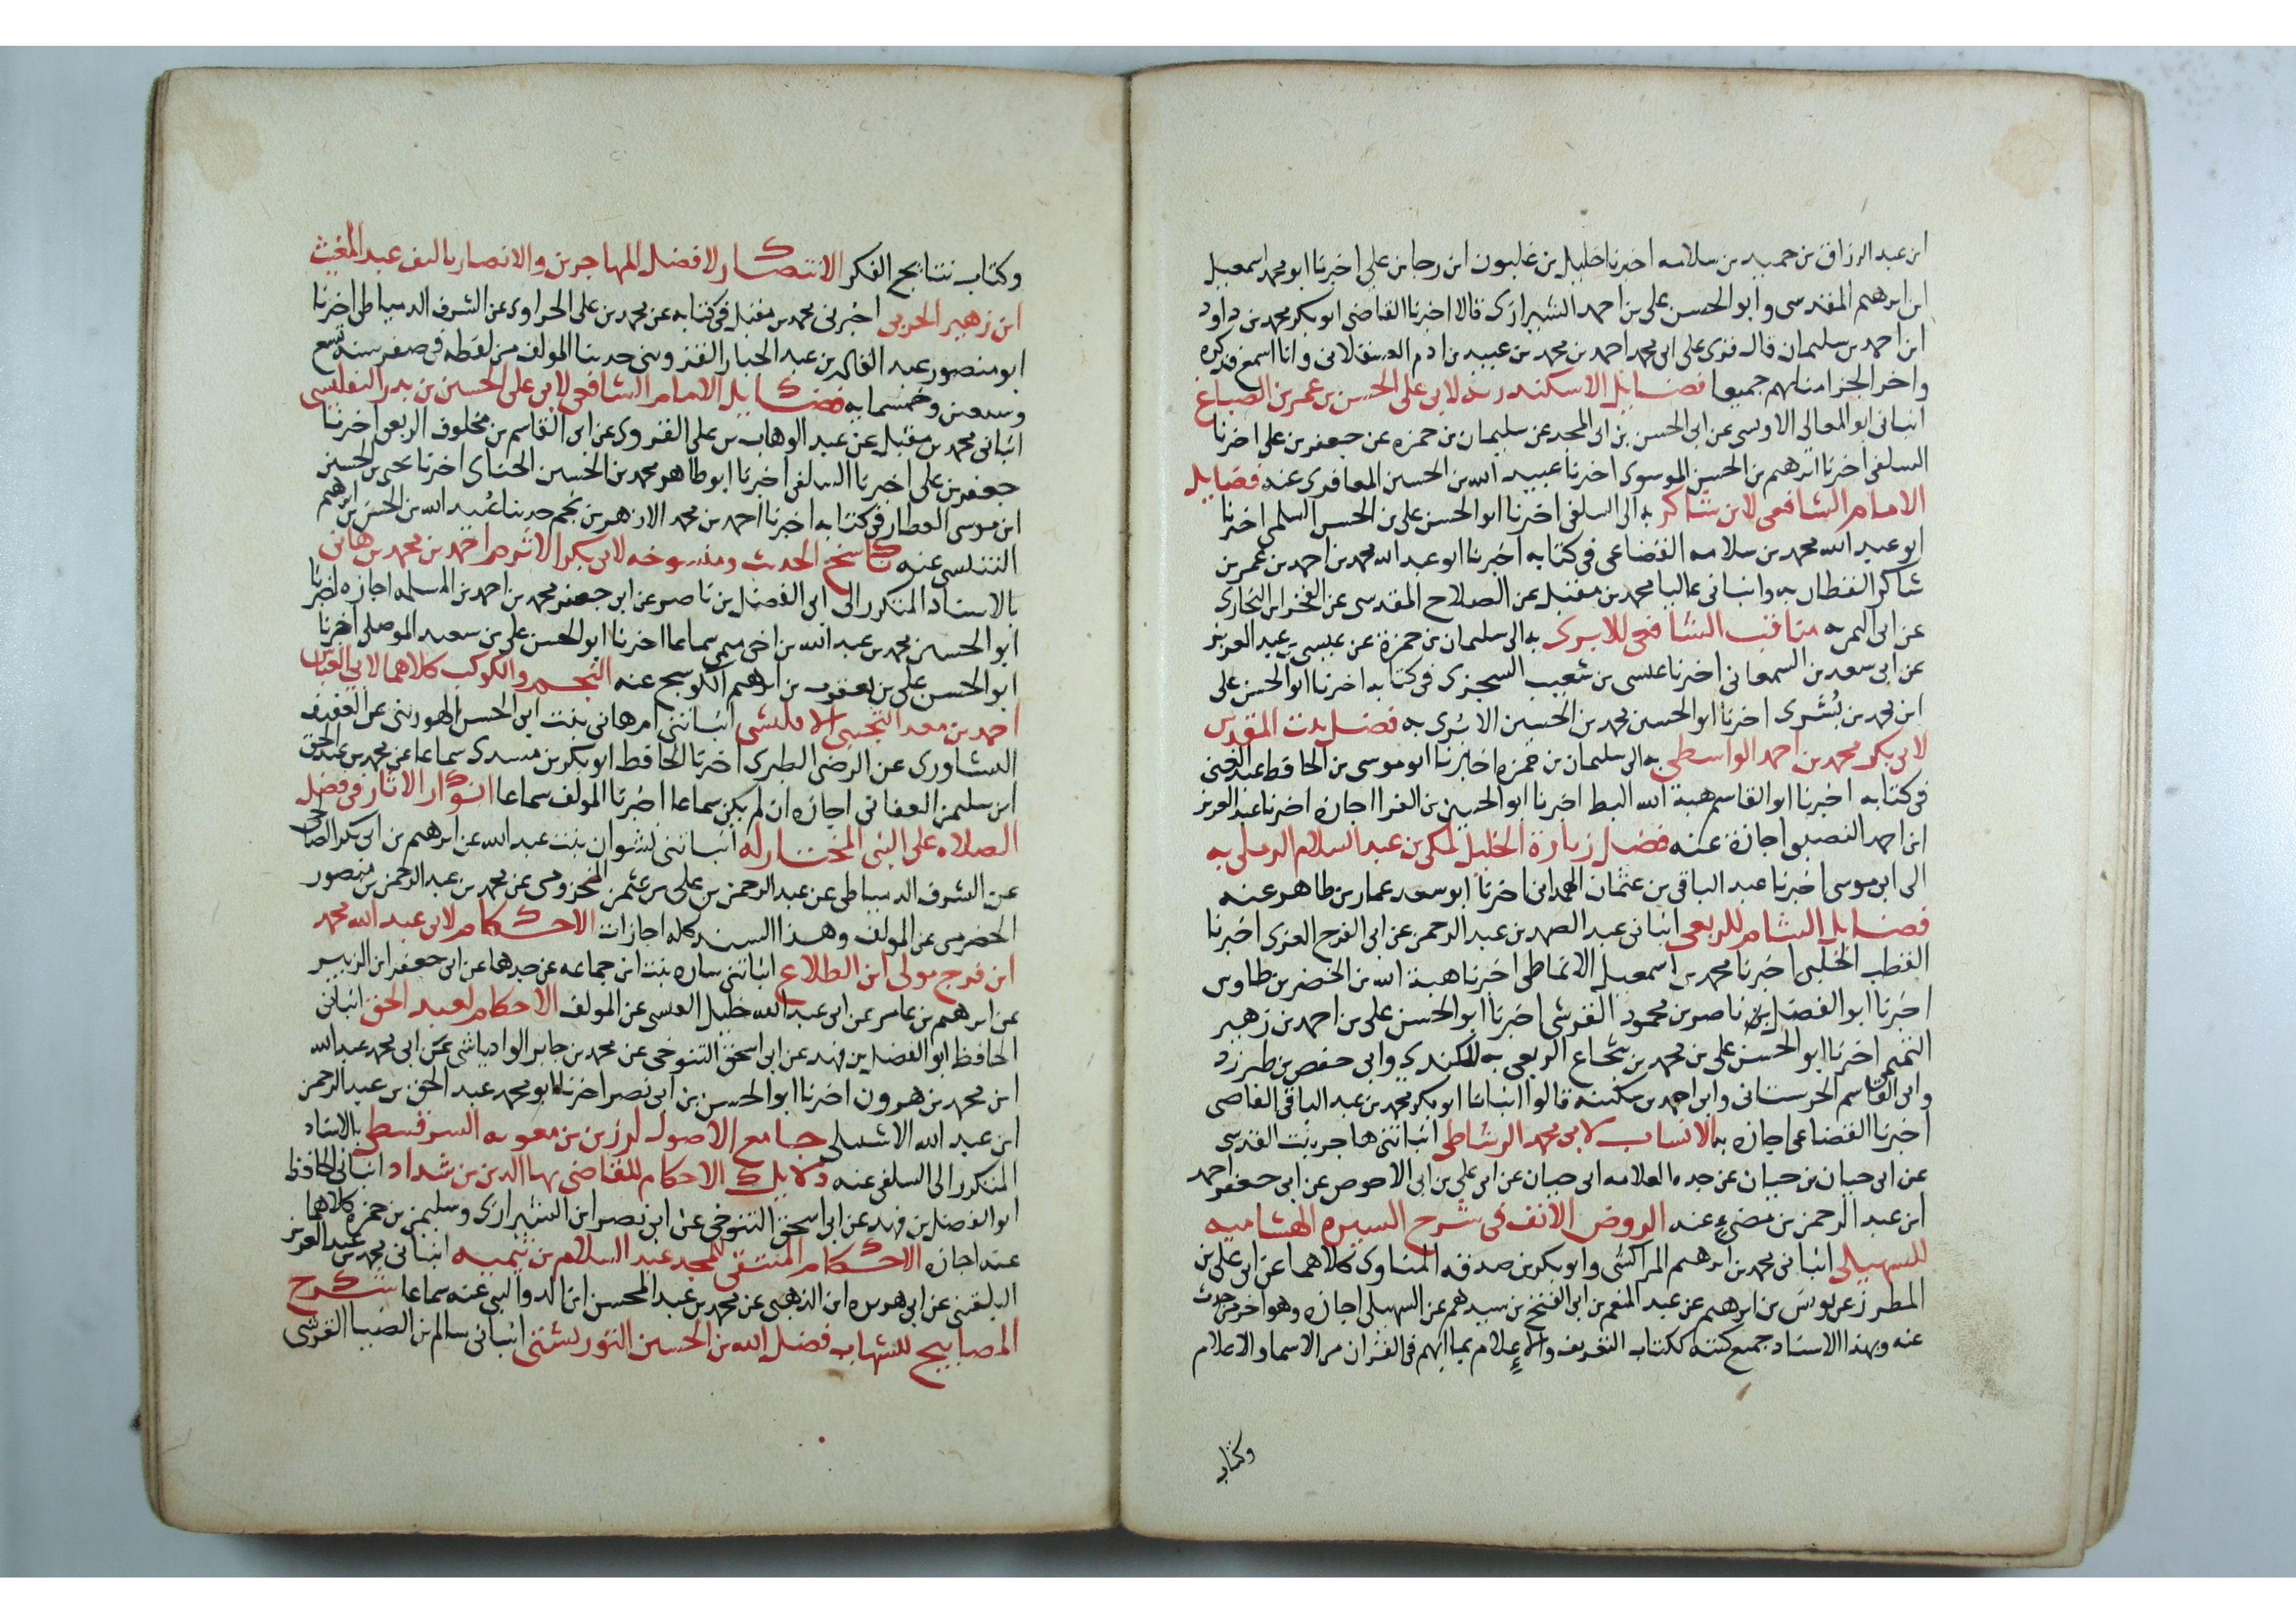 ابن عبد الرزاق بن حميد بن سلامه اخبرنا خليل بن غلبون ابن رجا بن علي اخبرنا ابو محمد اسمعيل
ابن ابرهيم المقدسى وابو الحسن على بن احمد الشيرازى قالا اخبرنا القاضى ابو بكر محمد بن داود
ابن احمد بن سليمان قال قرى على ابى محمد احمد بن محمد بن عبيد بن ادم العسقلانى وانا اسمع فذكره
واخر الجزامنا لهم جميعا فضايل الاسكندريه لابى على الحسن بن عمر بن الصباغ
انبانى ابو المعالى الاوسى عن ابى الحسن بن ابى المجد عن سليمان بن حمزه عن جعفر بن على اخبرنا
السلفى اخبرنا ابرهيم بن الحسن الموسوى اخبرنا عبيد الله بن الحسين المعافرى عنه فضايل
الامام الشافعى لابن شاكر به الى السلفى اخبرنا ابو الحسن على بن الحسن السلمى اخبرنا
ابو عبد الله محمد بن سلامه القضاعى فى كتابه اخبرنا ابو عبد الله محمد بن احمد بن عمر بن
شاكر القطان به وانبانى عاليا محمد بن مقبل عن الصلاح المقدسى عن الفخر ابن البخارى
عن ابى اليمن به مناقب الشافعى للابرى به الى سليمان بن حمزة عن عيسى بن عبد العزيز
عن ابى سعد بن السمعانى اخبرنا عيسى بن شعيب السجزى فى كتابه اخبرنا ابو الحسن على
ابن محمد بن بُشرى اخبرنا ابو الحسين محمد بن الحسين الابرى به فضل بيت المقدس
لابى بكر محمد بن احمد الواسطى به الى سليمان بن حمزه اخبرنا ابو موسى بن الحافظ عبد الغنى
فى كتابه اخبرنا ابو القاسم هبة الله السبط اخبرنا ابو الحسين بن الفرا اجازه اخبرنا عبد العزيز
ابن احمد النصيبى اجازة عنه فضل زيارة الخليل لمكى بن عبد السلام الرميلى به
الى ابى موسى اخبرنا عبد الباقى بن عثمان الهمدانى اخبرنا ابو سعد عمار بن طاهر عنه
فضايل الشام للربعى انبانى عبد الصمد بن عبد الرحمن عن ابى الفرج الغزى اخبرنا
القطب الحلبى اخبرنا محمد بن اسمعيل الانماطى اخبرنا هبة الله بن الخضر بن طاوس
اخبرنا ابو الفضل بن ناصر بن محمود القرشى اخبرنا ابو الحسن على بن احمد بن زهير
التميمى اخبرنا ابو الحسن على بن محمد بن شجاع الربعى به للكندى وابى حفص بن طبرزد
وابى القاسم الحرستانى وابن احمد بن سكينه قالوا انبانا ابو بكر محمد بن عبد الباقى القاضى
اخبرنا القضاعى اجازه به الانساب لابى محمد الرشاطى انباتنى هاجر بنت القدسى
عن ابى حيان بن حيان عن جده العلامه ابى حيان عن ابى على بن ابى الاحوص عن ابى جعفر احمد
ابن عبد الرحمن بن مضىء عنه الروض الانف فى شرح السيره الهشاميه
للسهيلى انبانى محمد بن ابرهيم المراكشى وابو بكر بن صدقه المناوى كلاهما عن ابى على بن
المطرز عن يونس بن ابرهيم عن عبد المنعم بن ابى الفتح بن سيدهم عن السهيلى اجازه وهو اخر من حدث
عنه وبهذا الاسناد جميع كتبه ككتاب التعريف والاعلام بما ابهم فى القران من الاسما والاعلام
وكتاب
وكتاب نتايج الفكر الانتصار لافضل المهاجرين والانصار تاليف عبد المغيث
ابن زهير الحربى اخبرنى محمد بن مقبل فى كتابه عن محمد بن على الحراوى عن الشرف الدمياطى اخبرنا
ابو منصور عبد القادر بن عبد الجبار القزوينى حدثنا المولف من لفظه فى صفر سنة تسع
وسبعين وخمسمايه فضايل الامام الشافعى لابى على الحسين بن بدر النفليسى
انبانى محمد بن مقبل عن عبد الوهاب بن على القروى عن ابى القاسم بن مخلوف الربعى اخبرنا
جعفر بن على اخبرنا السلفى اخبرنا ابو طاهر محمد بن الحسين الحناى اخبرنا يحيى بن الحسين
ابن موسى العطار فى كتابه اخبرنا احمد بن محمد الازهر بن نجم حدثنا عبيد الله بن الحسن بن ابرهيم
التنيسى عنه ناسخ الحديث ومنسوخه لابى بكر الاثرم احمد بن محمد بن هانى
بالاسناد المذكور الى ابى الفضل بن ناصر عن ابى جعفر محمد بن احمد بن المسلمه اجازه اخبرنا
ابو الحسين محمد بن عبد الله بن اخى ميمى سماعا اخبرنا ابو الحسن على بن سعيد الموصلى اخبرنا
ابو الحسن على بن يعقوب بن ابرهيم الكوسج عنه النجم والكوكب كلاهما لابى العباس
احمد بن معد التجيبى الاقليشى انباتنى ام هانى بنت ابى الحسن الهورينى عن العفيف
النشاورى عن الرضى الطبرى اخبرنا الحافظ ابو بكر بن مسدى سماعا عن محمد بن عبد الحق
ابن سليمن العفانى اجازه ان لم يكن سماعا اخبرنا المولف سماعا انوار الاثار فى فضل
الصلاه على النبى المختار له انباتنى نشوان بنت عبد الله عن ابرهيم بن ابى بكر الصالحى
عن الشرف الدمياطى عن عبد الرحمن بن على بن عثمن المخزومى عن محمد بن عبد الرحمن بن منصور
الحضرمى عن المولف وهذا السند كله اجازات الاحكام لابى عبد الله محمد
ابن فرج مولى ابن الطلاع انباتنى ساره بنت ابن جماعه عن جدها عن ابى جعفر ابن الزبير
عن ابرهيم بن عامر عن ابى عبد الله خليل القيسى عن المولف الاحكام لعبد الحق انبانى
الحافظ ابو الفضل بن فهد عن ابى اسحق التنوخى عن محمد بن جابر الوادياشى عن ابى محمد عبد الله
ابن محمد بن هرون اخبرنا ابو الحسن بن ابى نصر اخبرنا ابو محمد عبد الحق بن عبد الرحمن
ابن عبد الله الاشبيلى جامع الاصول لرزين بن معويه السرقسطى بالاسناد
المذكور الى السلفى عنه دلايل الاحكام للقاضى بها الدين بن شداد انبانى الحافظ
ابو الفضل بن فهد عن ابى اسحق التنوخى عن ابى نصر ابن الشيرازى وسليمن بن حمزه كلاهما
عنه اجازه الاحكام المنتقى للمجد عبد السلام بن تيميه انبانى محمد بن عبد العزيز
البلقينى عن ابى هريره ابن الذهبى عن محمد بن عبد المحسن ابن الدواليبى عنه سماعا شرح
المصابيح للشهاب فضل الله بن الحسين التوربشتى انبانى سالم بن الضيا القرشى